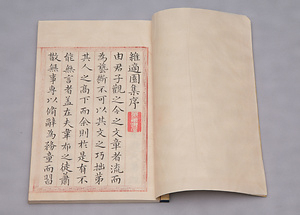 雜適園集序
由君子觀之今之文章者流而
為藝術不可以其文之巧拙第
其人之高下而余則於是有不
能無言者蓋在夫韋布之徒蕭
散無事專以脩辭為務童而習